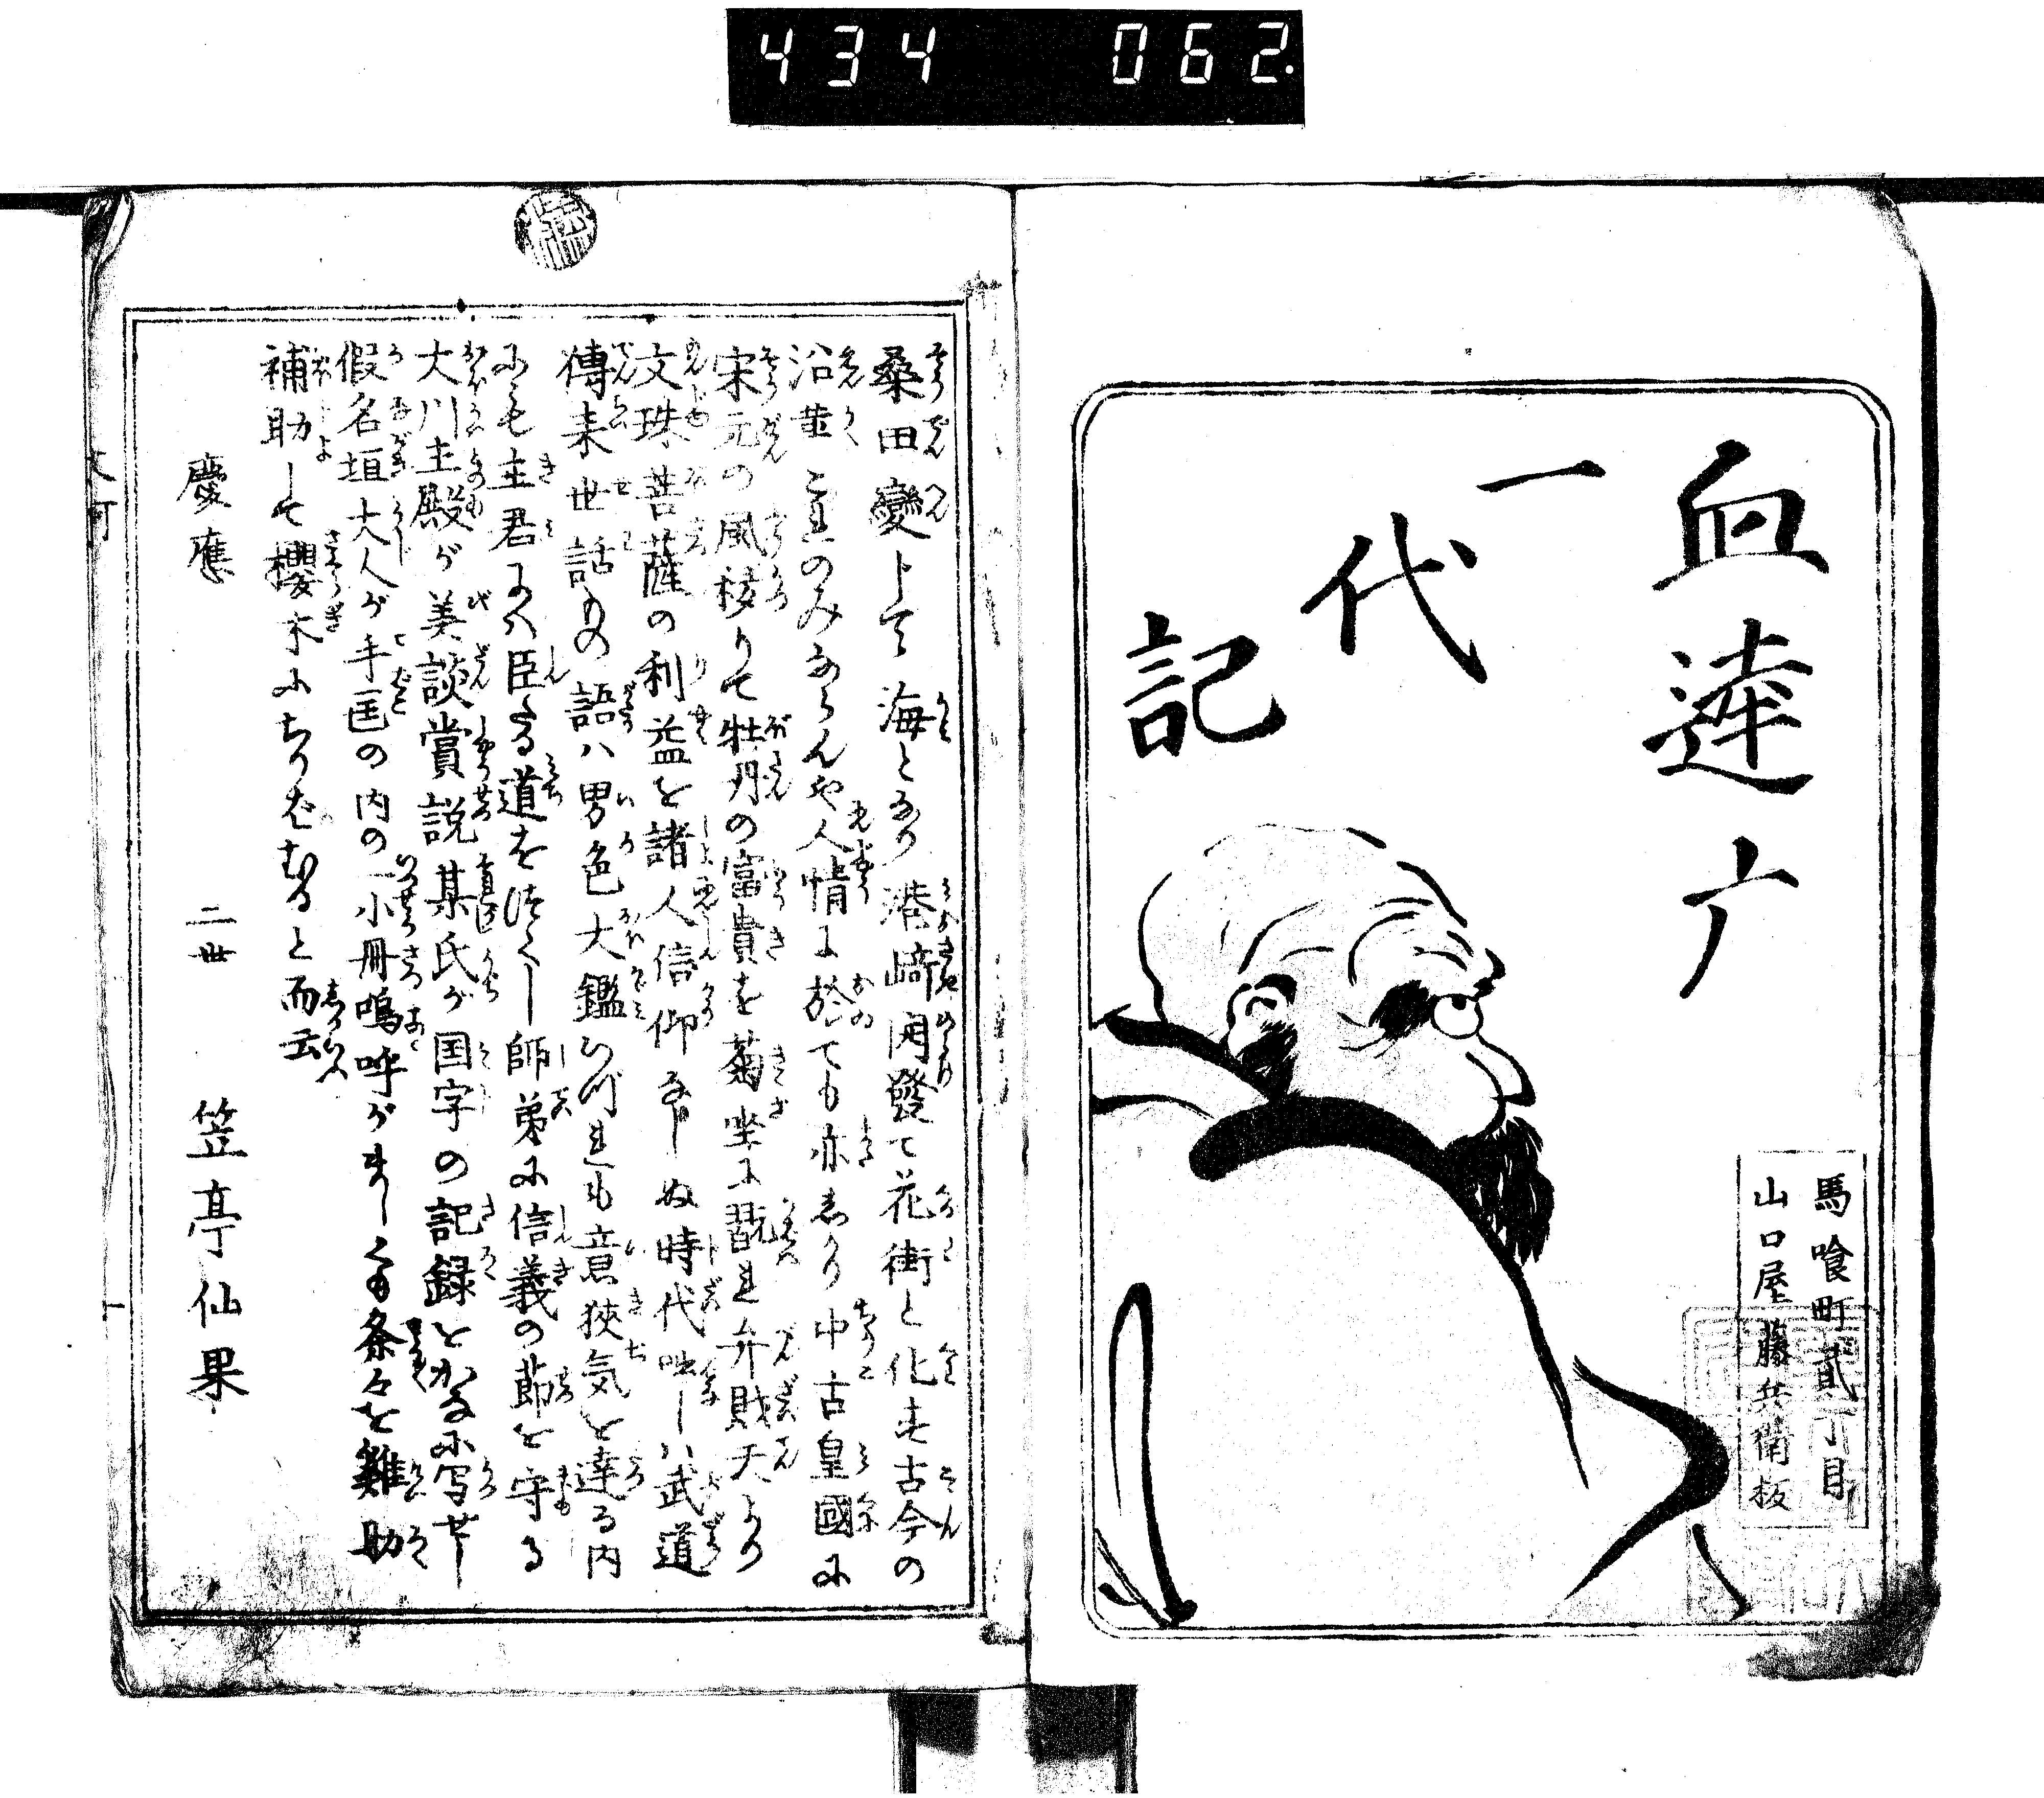 434 062.
血達广
一代記
馬喰町貳丁目
山口屋藤兵衛板
桑田變して海となり港﨑開發て花街と化す古今の
沿革これのみならんや人情に於ても亦しかり中古皇國に
宋元の風移りて牡丹の富貴を菊坐に翫れ弁財天より
文珠菩薩の利益を諸人信仰なしぬ時代咄しハ武道
傳来世話ものゝ語ハ男色大鑑いづれも意狹気を達る内
にも主君にハ臣たる道をつくし師弟に信義の節を守る
大川主殿が美談賞説某氏が国字の記録とかなに写せし
假名垣大人が手匡の内の一小冊嗚呼がましくも条々を雞助
補助して櫻木にちりばむると而云
慶應
二世 笠亭仙果